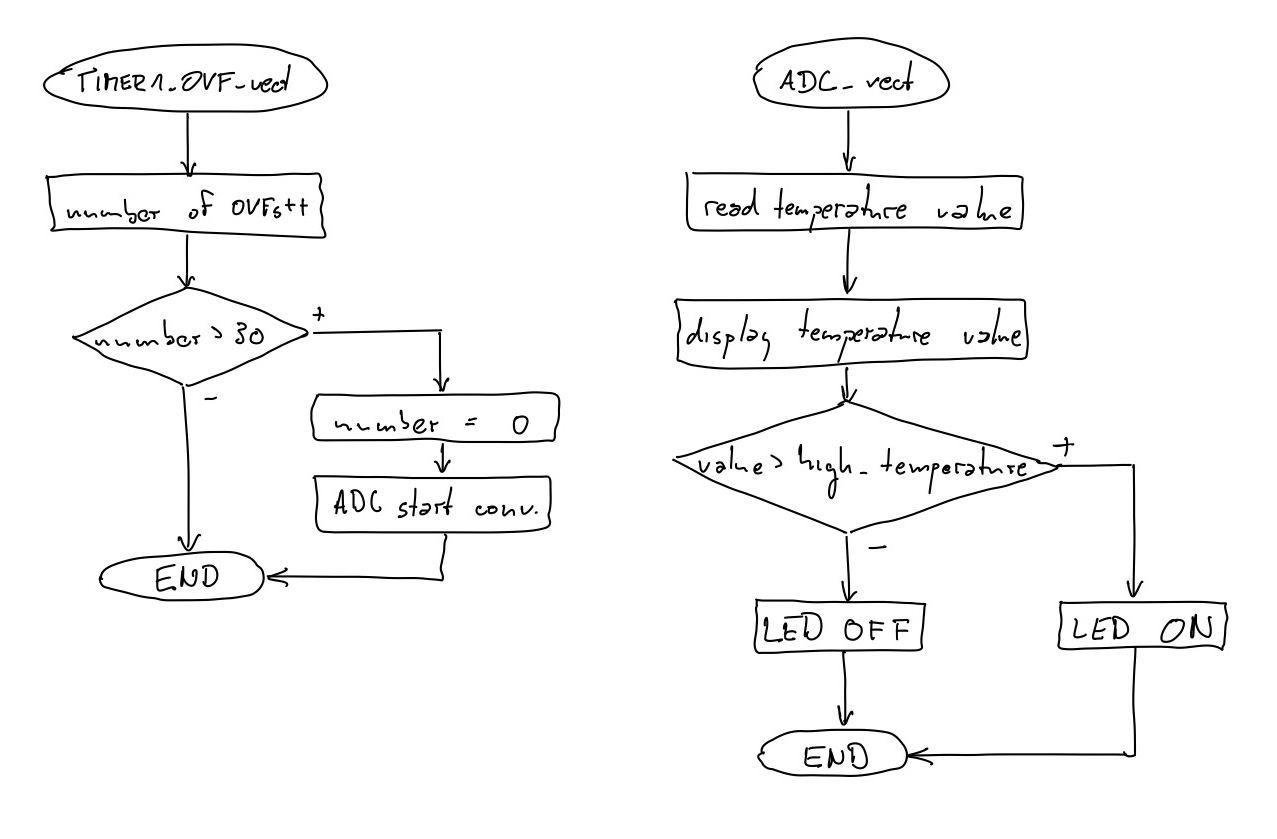 TIMER1_OVF_vect
number of OVFs++
number > 30
+
-
number = 0
ADC start conv.
END
ADC_vect
read temperature value
display temperature value
value > high_temperature
+
-
LED OFF
LED ON
END